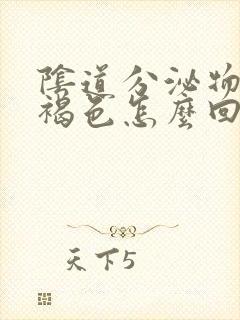 陰道分泌物
褐色怎麼回
天下5